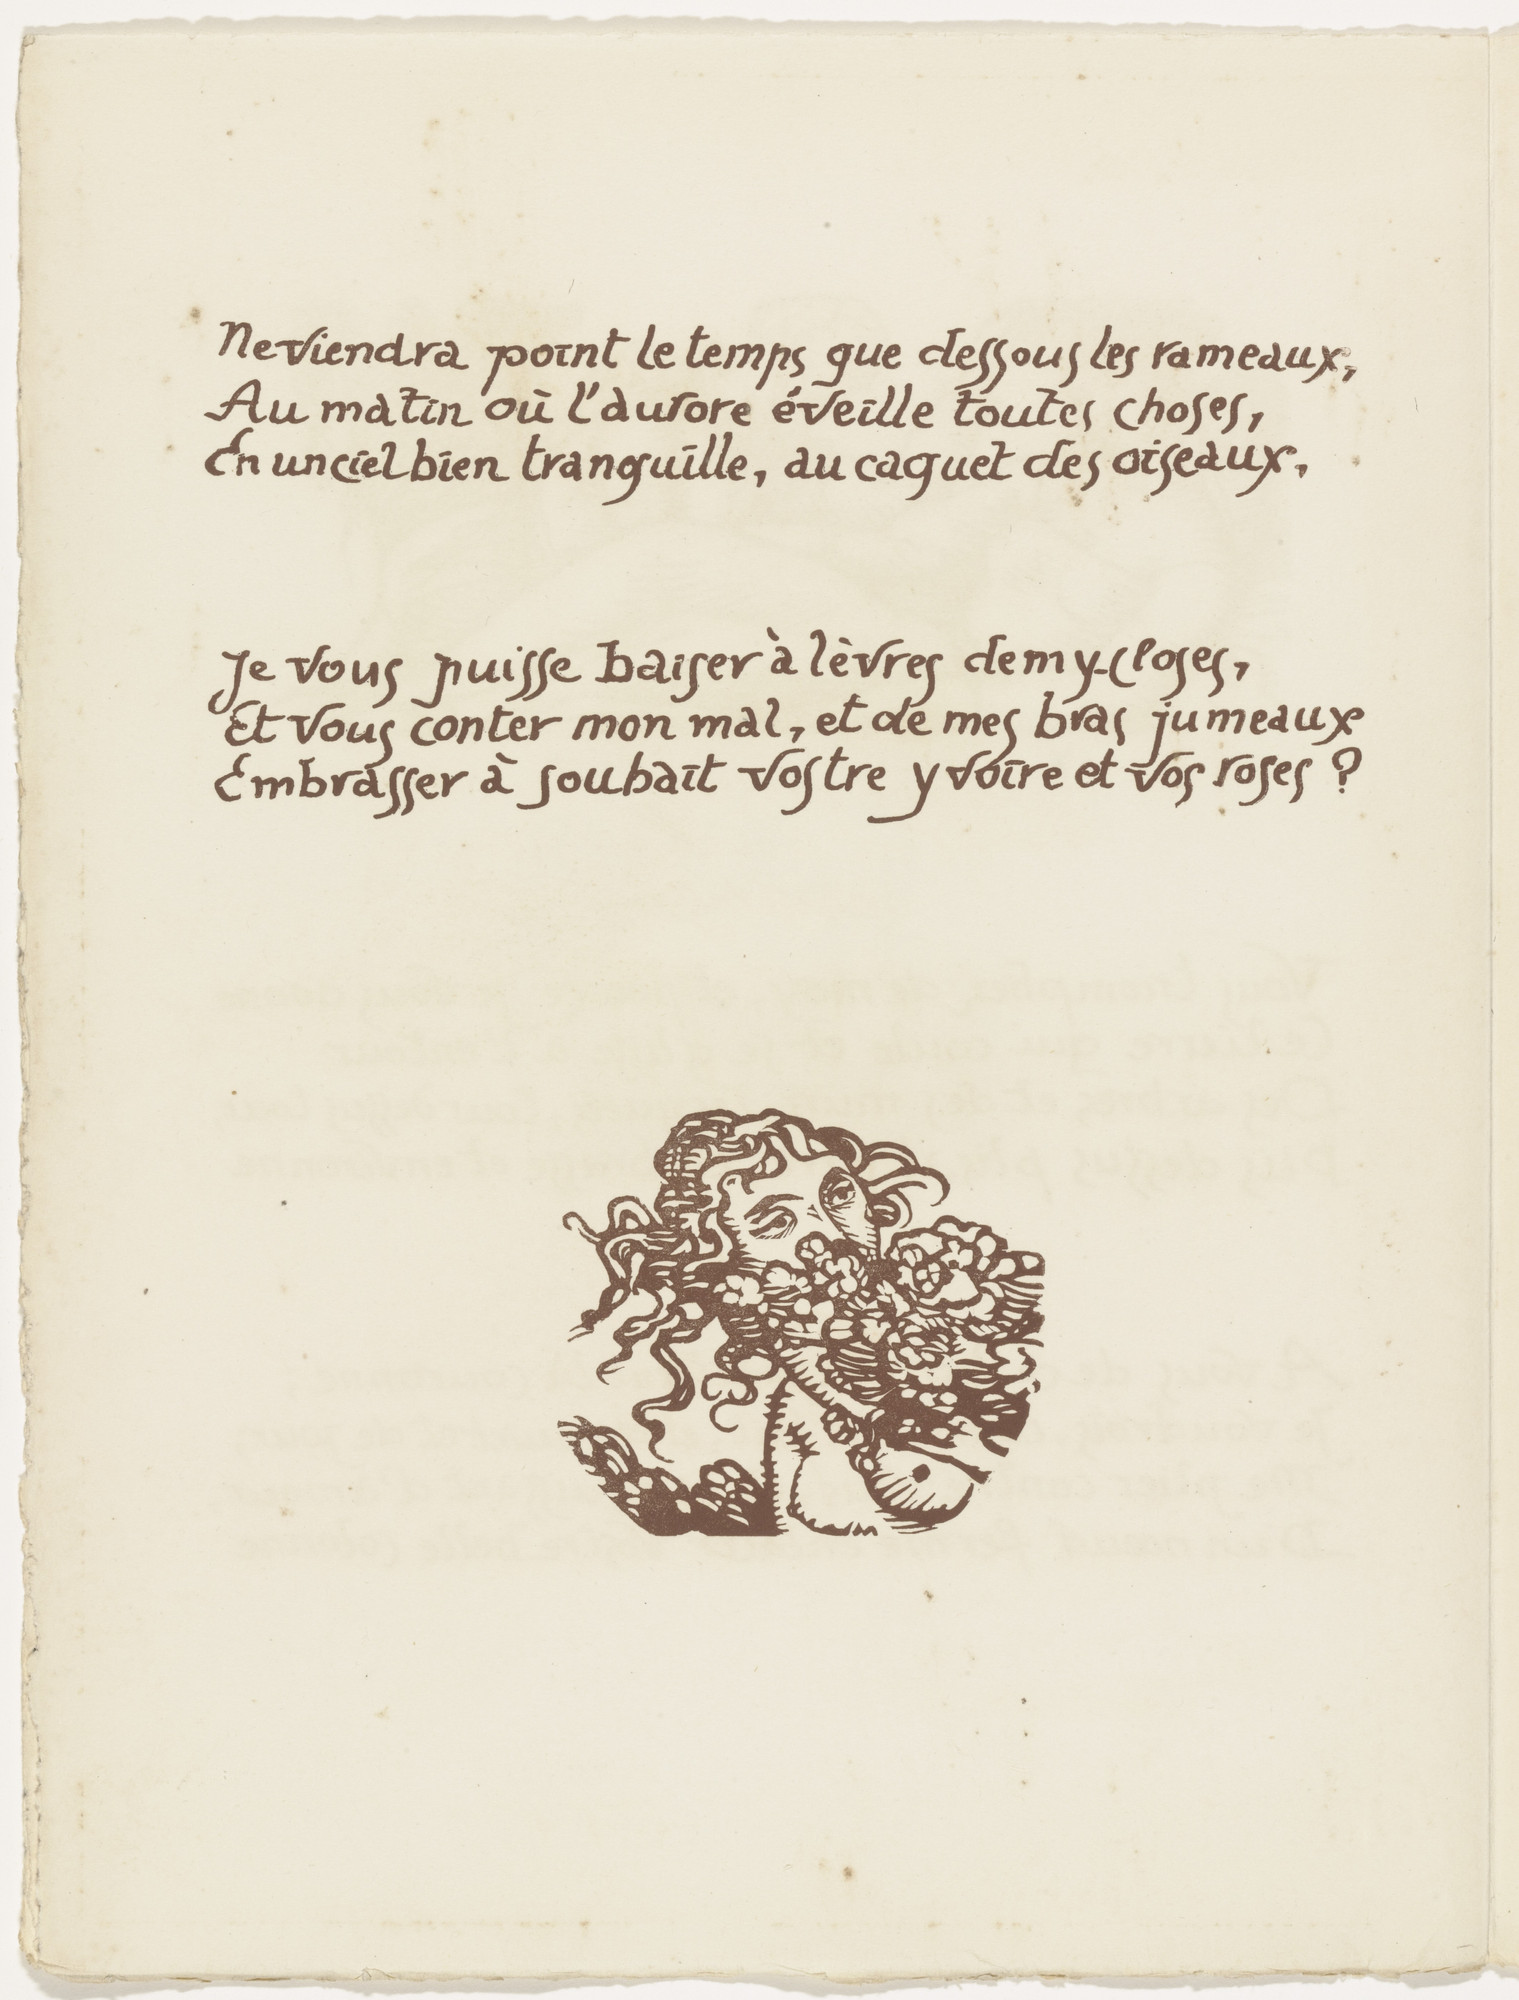 Ne viendra point le temps que dessous les rameaux,
Au matin où l'aurore éveille toutes choses,
En un ciel bien tranquille, au caquet des oiseaux,
Je vous puisse baiser à lèvres demy-closes,
Et vous conter mon mal, et de mes bras jumeaux
Embrasser à souhait vostre yvoire et vos roses ?